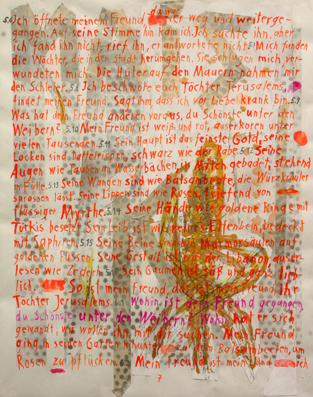 dann
5.6 Ich öffnete meinem Freund, aber er war weg und weiterge-
gangen. Auf seine Stimme hin kam ich. Ich suchte ihn, aber
ich fand ihn nicht; rief ihn, er antwortete nicht. 5.7 Mich fanden
die Wächter, die in der Stadt herumgehen. Sie schlugen mich, ver-
wundeten mich. Die Hüter auf den Mauern nahmen mir
den Schleier. 5.8 Ich beschwöre euch, Töchter Jerusalems,
findet meinen Freund. Sagt ihm, dass ich vor Liebe krank bin. 5.9
Was hat dein Freund anderen voraus, du Schönste unter den
Weibern? 5.10 Mein Freund ist weiß und rot, auserkoren unter
vielen Tausenden. 5.11 Sein Haupt ist das feinste Gold, seine
Locken sind Dattelrispen, schwarz wie der Rabe. 5.12 Seine
Augen wie Tauben an Wasserbächen, in Milch gebadet, stehend
in Fülle. 5.13 Seine Wangen sind wie Balsambeete, die Würzkräuter
sprossen lässt. Seine Lippen sind wie Rosen, triefend von
flüssiger Myrrhe. 5.14 Seine Hände wie goldene Ringe mit
Türkis besetzt. Sein Leib ist wie reines Elfenbein, bedeckt
mit Saphiren. 5.15 Seine Beine sind wie Marmorsäulen auf
goldenen Füssen. Seine Gestalt ist wie der Libanon, auser-
lesen wie Zedern. Sein Gaumen ist süß und ganz lieb-
lich. So ist mein Freund, das ist mein Freund, ihr
Töchter Jerusalems. Wohin ist dein Freund gegangen,
du Schönste unter den Weibern? Wohin hat er sich
gewandt, wir wollen ihn mit dir suchen. Mein Freund
ging in seinen Garten hinunter, zu den Balsambeeten, um
Rosen zu pflücken. Mein Freund ist mein und ich
7